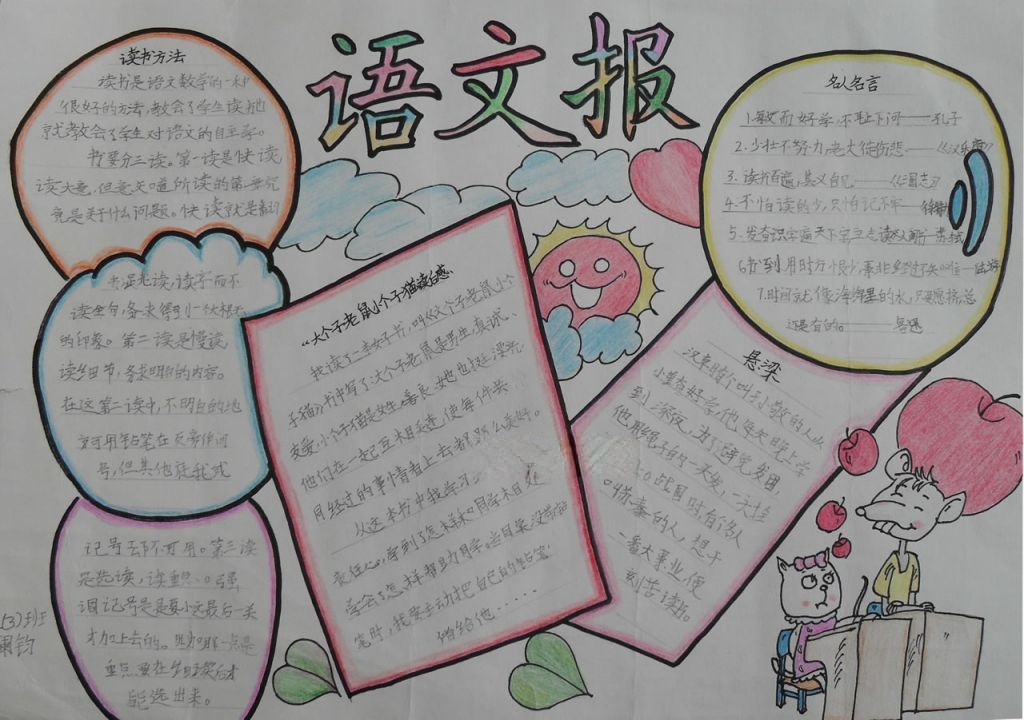 语文报
读书方法
读书是语文教学的一种
很好的方法,教会了学生读书他
就教会了学生对语文的自主学。
我要分三读。第一读是快读
读大意,但意知道所读的第一
竟是关于什么问题。快读就是
读,读字而不
读全句,
的印象。第二读是慢读
读细节,务求明白的内容。
在这第二读中,不明白的地
方可用铅笔在页旁作问
号,但其他
记号却不可用。第三读
是选读,读重
调记号是要最后一类
才加上去的。哪一点是
重点要在
能选出来。
(3)班
钧
《大个子老鼠小个子猫》读后感
我读了一本好书,叫《大个子老鼠小个
子猫》书中写了:大个子老鼠是男生,真诚、
小个子猫是女生,善良、她也挺漂亮
他们在一起互相关连,使每件共
同经过的事情看上去都那么美好。
从这本书中我学习
责任心,看到了怎么样和同学相处
学会了怎样帮助同学。当同桌没带铅
笔时,我要主动把自己的铅笔
借给他……
名人名言
1.敏而好学,不耻下问——孔子
2.少壮不努力,老大徒伤悲——《汉乐府》
3.读书百遍,其义自见——《三国志》
4.不怕读的少,只怕记不牢——徐特
5.发奋识字遍天下,立志读尽人间——苏轼
6书到用时方恨少,事非经过不知难—陆游
7.时间就像海绵里的水,只要愿挤,总
还是有的。——鲁迅
悬梁
汉朝时,有个叫孙敬的人,从
小勤奋好学,他每天晚上学
到深夜,为了避免发困,
他用绳子的一头
战国时有个名人
叫苏秦的人,想干
一番大事业,便
刻苦读书。